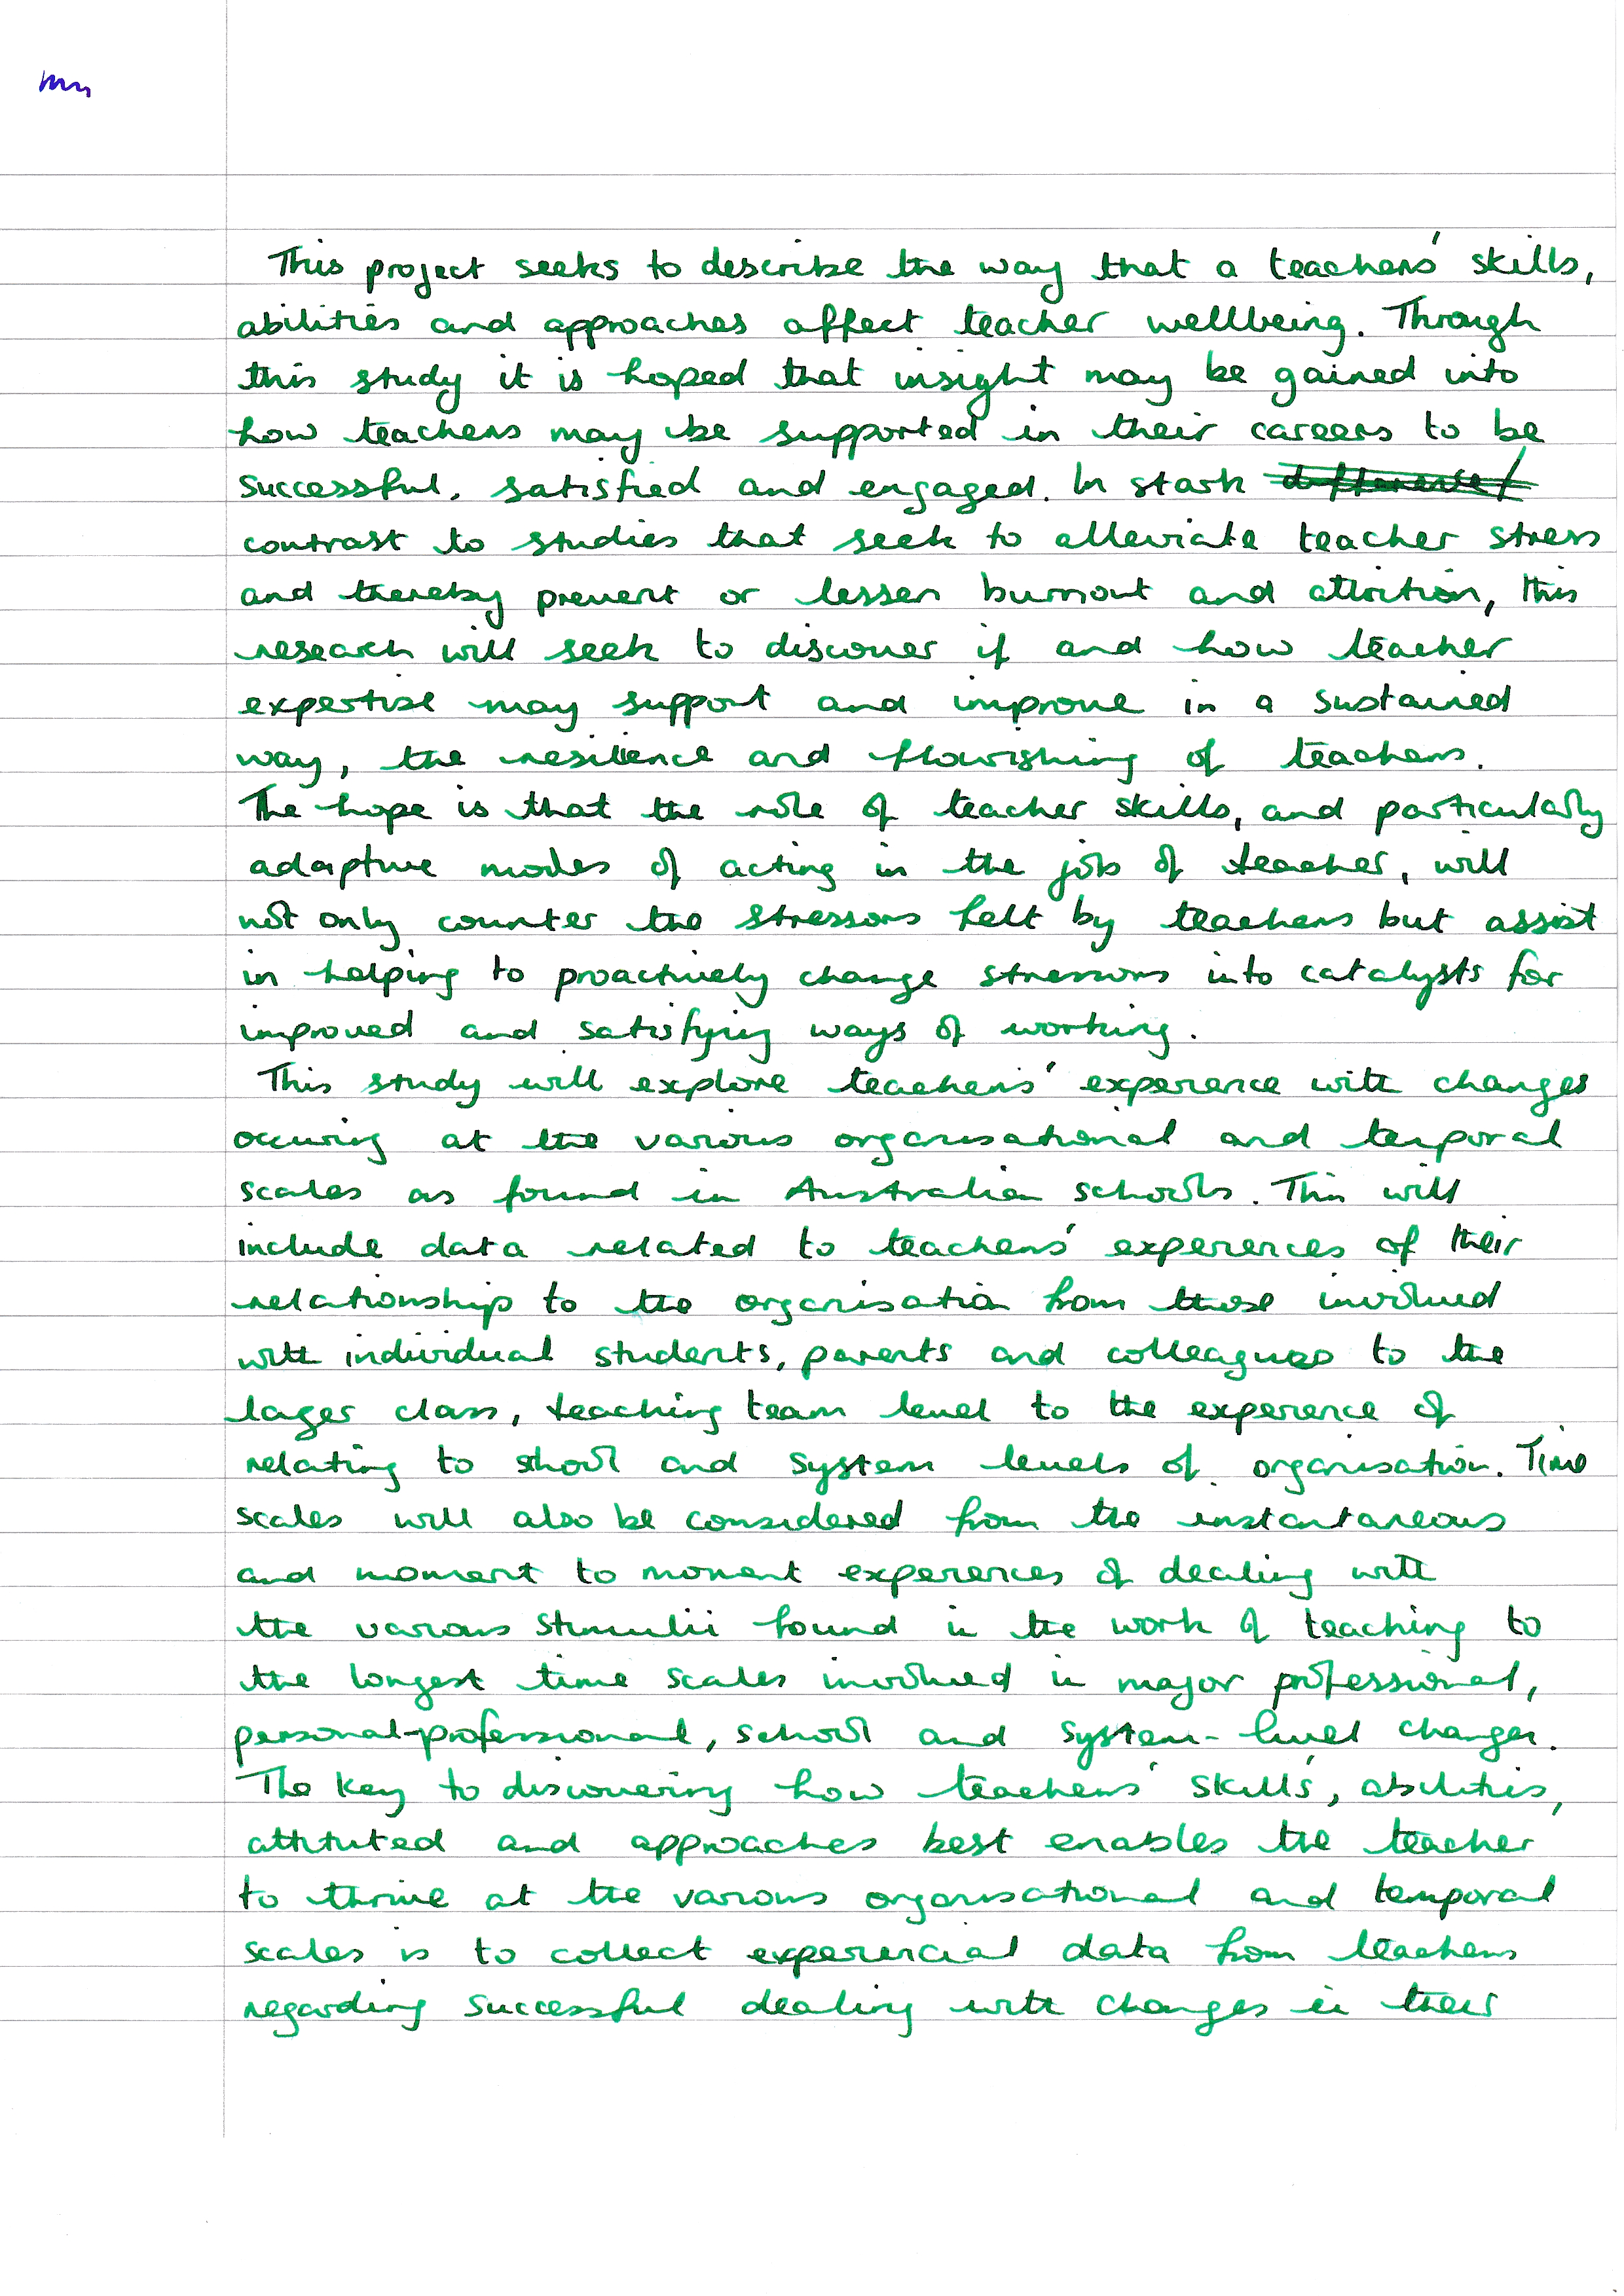 This project seeks to describe the way that a teachers' skills,
abilities and approaches affect teacher wellbeing. Through
this study it is hoped that insight may be gained into
how teachers may be supported in their careers to be
successful, satisfied and engaged. In stark
contrast to studies that seek to alleviate teacher stress
and thereby prevent or lessen burnout and attrition, this
research will seek to discover if and how teacher
expertise may support and improve in a sustained
way, the resilience and flourishing of teachers.
The hope is that the role of teacher skills, and particularly
adaptive modes of acting in the job of teacher, will
not only counter the stressors felt by teachers but assist
in helping to proactively change stressors into catalysts for
improved and satisfying ways of working.
This study will explore teachers' experience with changes
occuring at the various organisational and temporal
scales as found in Australian schools. This will
include data related to teachers' experiences of their
relationship to the organisation from those involved
with individual students, parents and colleagues to the
lager class, teaching team level to the experience of
relating to school and system levels of organisation. Time
scales will also be considered from the instantaneous
and moment to moment experiences of dealing with
the various stimulii found in the work of teaching to
the longest time scales involved in major professional,
personal-professional, school and system-level changes.
The key to discovering how teachers' skills, abilities,
attituted and approaches best enables the teacher
to thrive at the various organisational and temporal
scales is to collect experiencial data from teachers
regarding successful dealing with changes in their